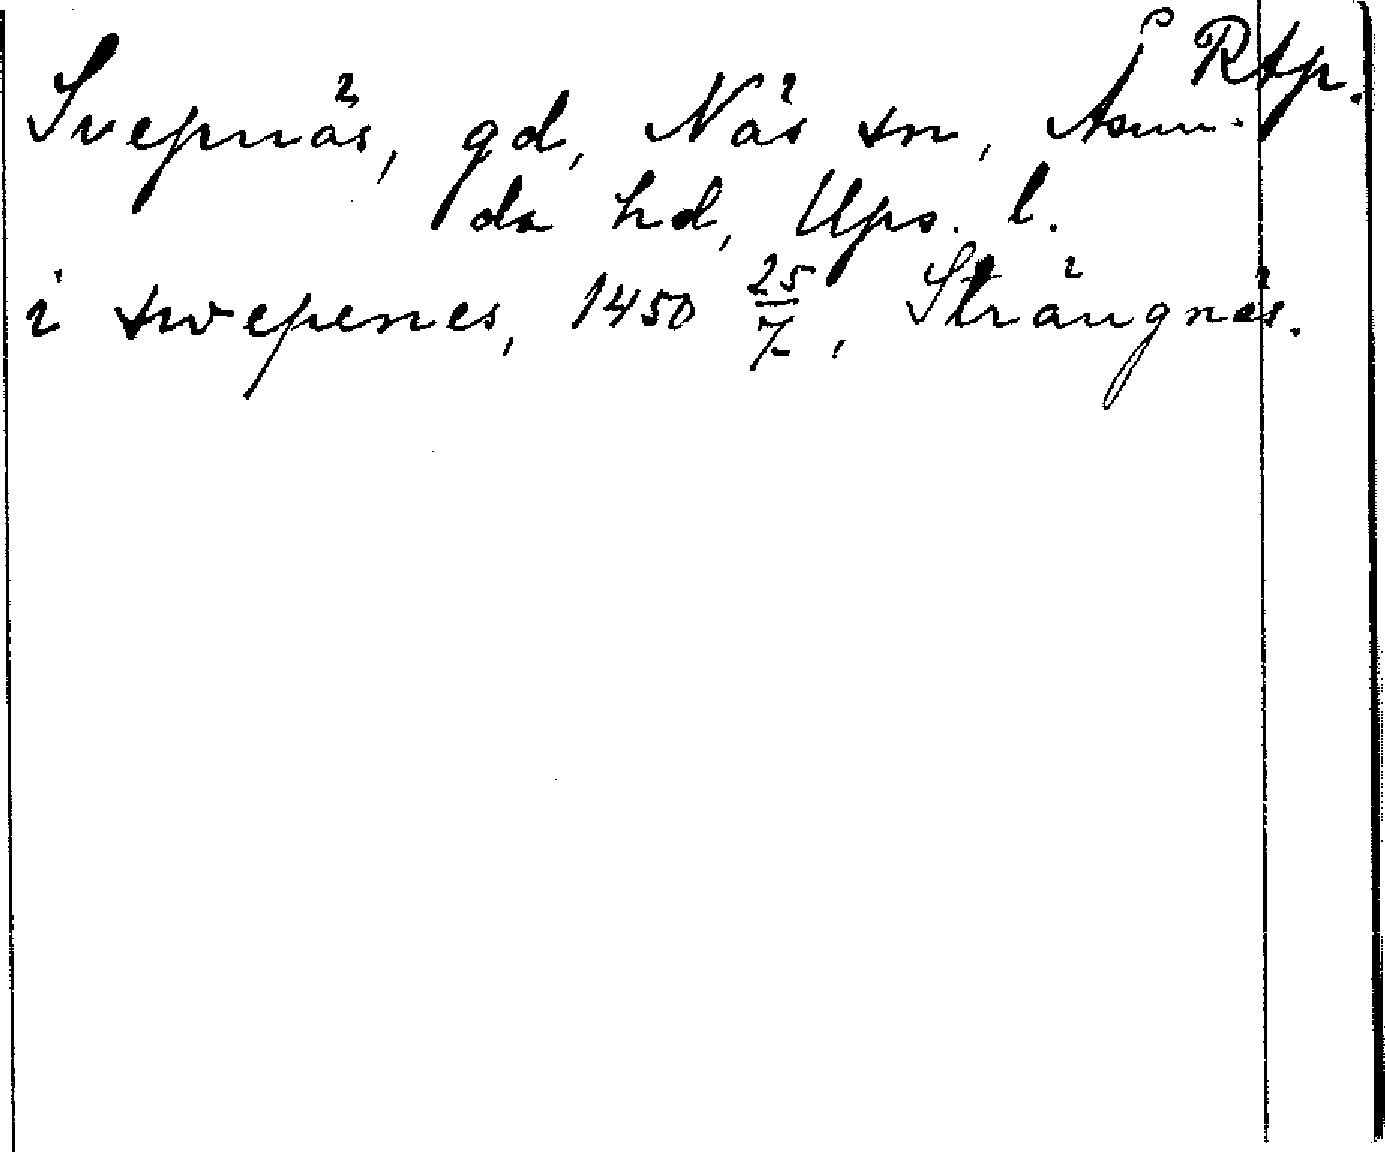 ſ Rtp.
Svepnäs, gd, Näs sn, Asun-
da hd, Ups. l.
i swepenes, 1450 25/7, Strängnäs.